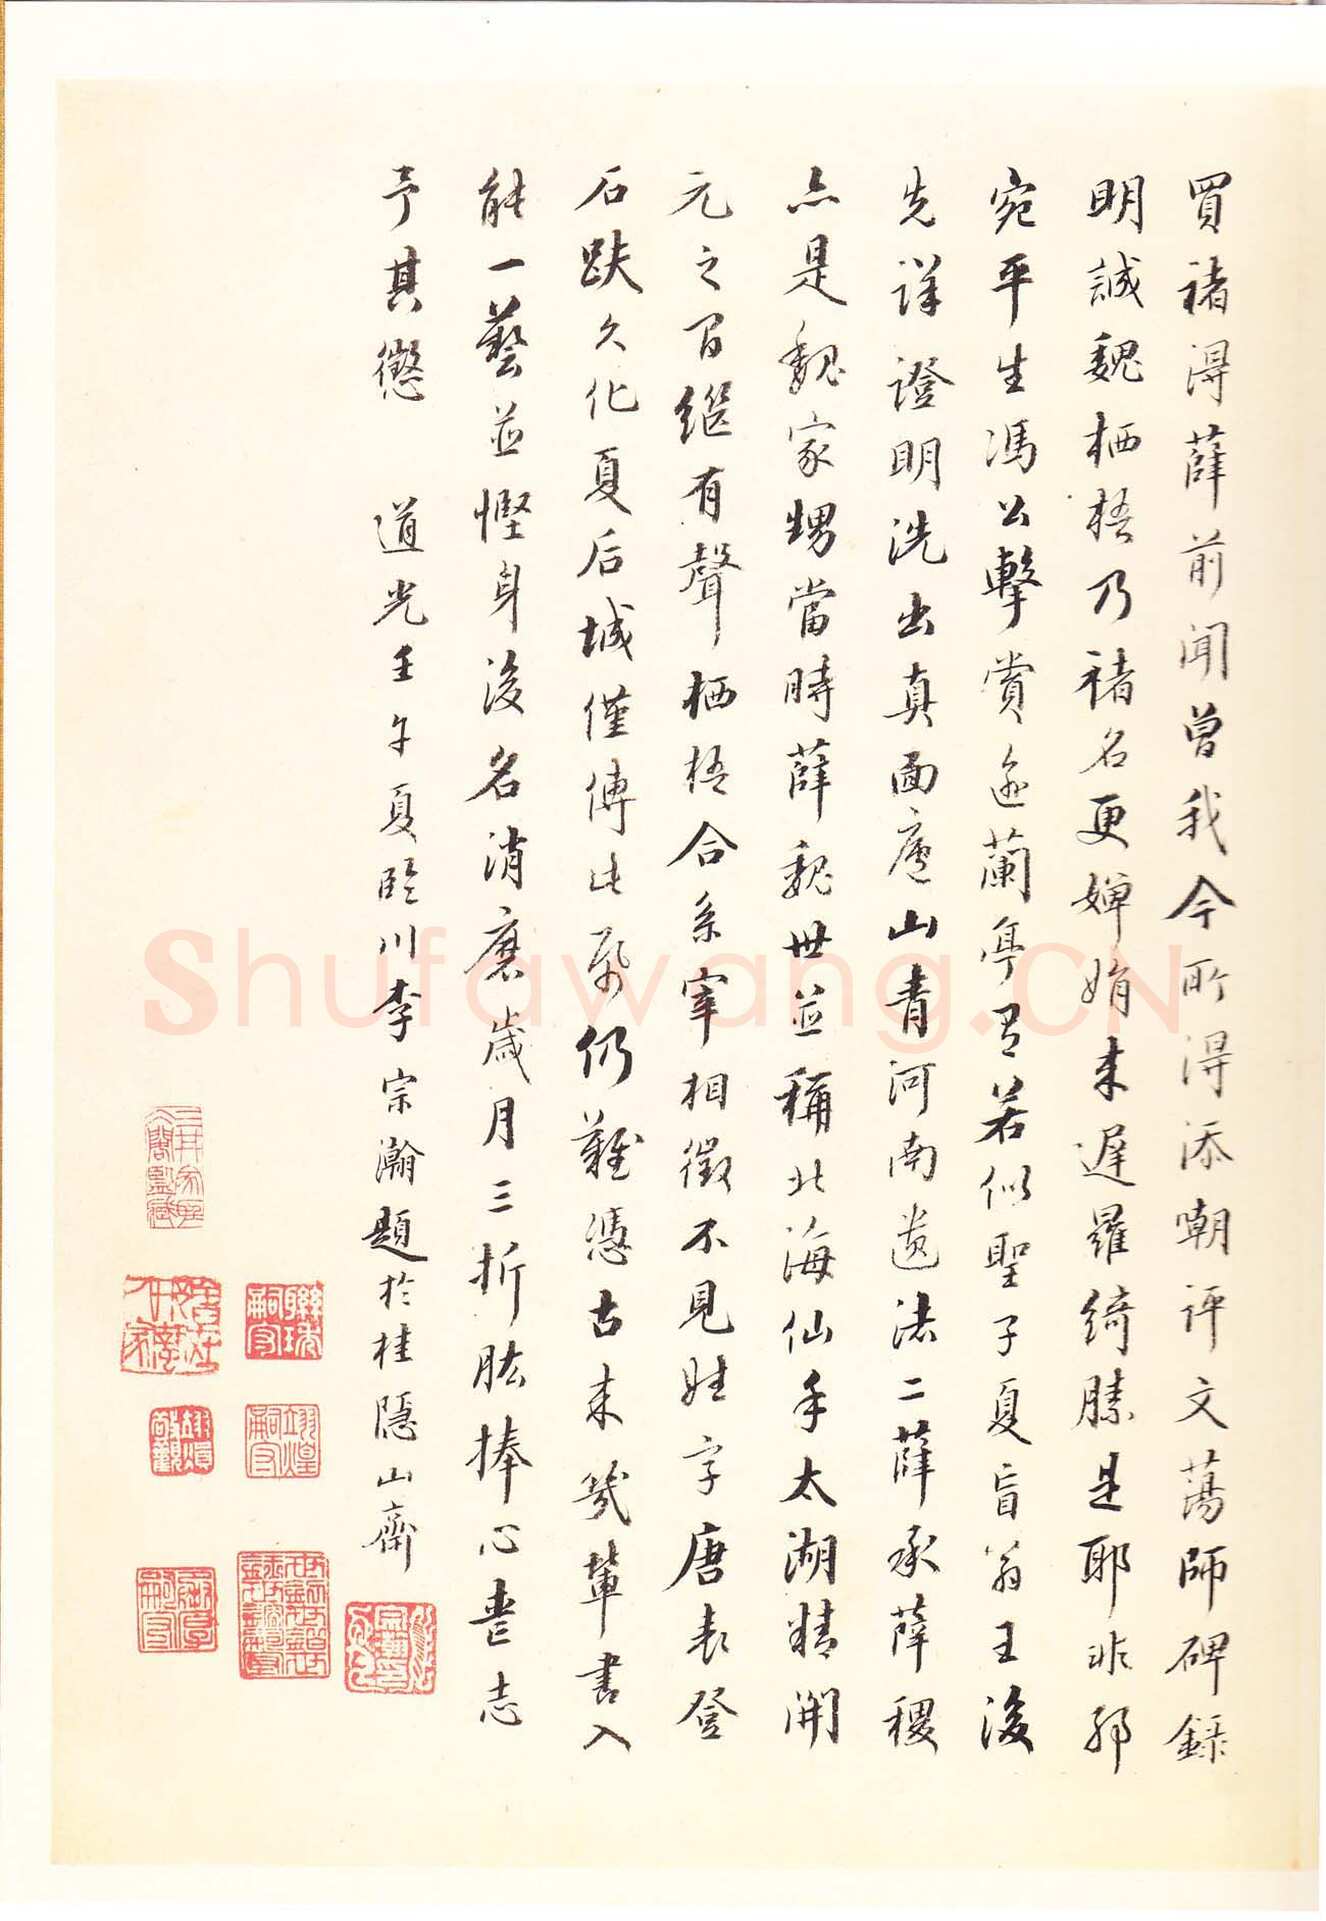 買褚得薛前聞曾我今所得添嘲評文蕩師碑録
明誠魏栖梧乃褚名更嬋娟来遲羅綺勝是耶非邪
宛平生馮公擊賞逾蘭亭若似聖子夏盲翁王後
先詳證明洗出真面廬山青河南遺法二薛承薛稷
亦是魏家甥當時薛魏世並稱北海仙手太湖精開
元之間继有聲栖梧合系宰相徵不見姓字唐表登
石趺久化夏后城僅傳此紙仍難憑古来幾輩書入
能一藝並慳身後名消磨歲月三折肱捧心耋志
予其懲 道光壬午夏臨川李宗瀚題於桂隱山齋
Shufawang.CN